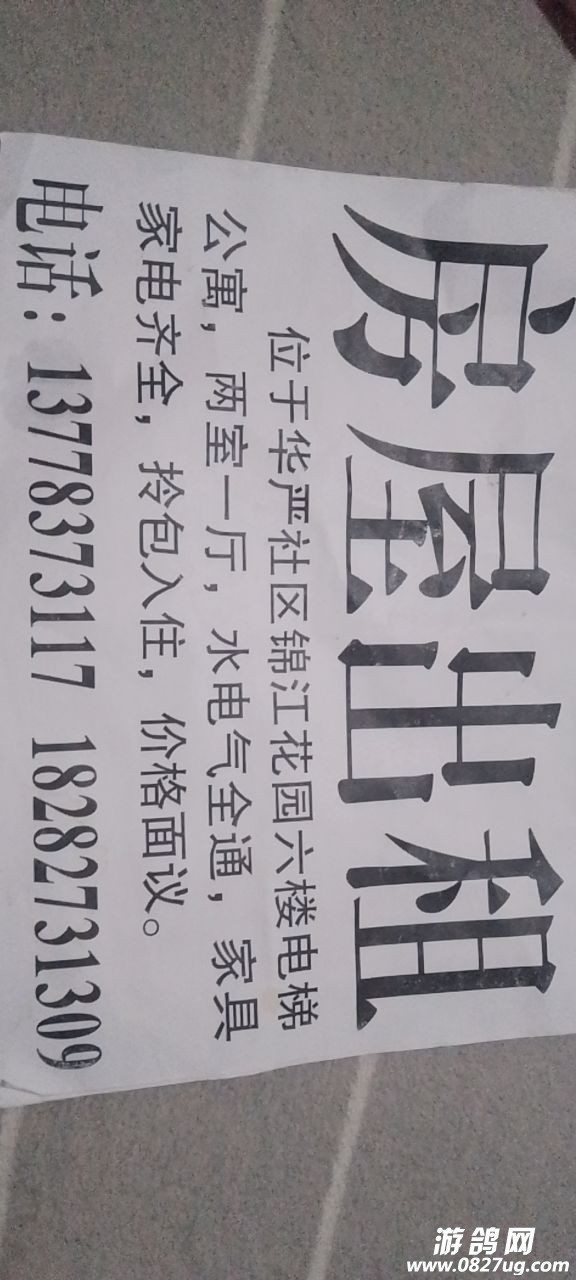 房屋出租
位于华严社区锦江花园六楼电梯
公寓，两室一厅，水电气全通，家具
家电齐全，拎包入住，价格面议。
电话：13778373117 18282731309
游鸽网
www.0827ug.com